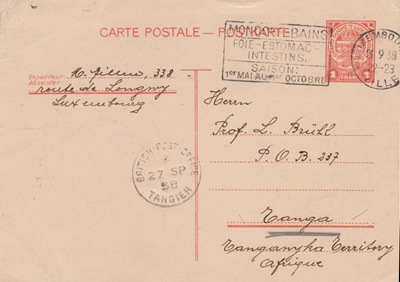 CARTE POSTALE — POSTKARTE
MONDORF-BAINS
FOIE-ESTOMAC-
INTESTINS.
SAISON:
1er MAI AU 1er OCTOBRE
LUXEMBOURG
9 38
-23
VILLE
1 FRANC 1
Expéditeur:
Absender:
338
route de Longwy
Luxembourg
Herrn
Prof. L. Brühl
P. O. B. 237
Tanga
Tanganyka Territory
Afrique
BRITISH·POST·OFFICE
27 SP
38
TANGIER